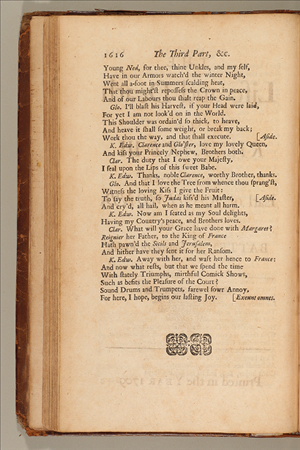 1616 The Third Part, &c.
Young Ned, for thee, thine Unkles, and my self,
Have in our Armors watch'd the winter Night,
Went all a-foot in Summers scalding heat,
That thou might'st repossess the Crown in peace,
And of our Labours thou shalt reap the Gain.
Glo. I'll blast his Harvest, if your Head were laid,
For yet I am not look'd on in the World.
This Shoulder was ordain'd so thick, to heave,
And heave it shall some weight, or break my back;
Work thou the way, and that shall execute. [Aside.
K. Edw. Clarence and Glo'ster, love my lovely Queen,
And kiss your Princely Nephew, Brothers both.
Clar. The duty that I owe your Majesty,
I seal upon the Lips of this sweet Babe.
K. Edw. Thanks, noble Clarence, worthy Brother, thanks.
Glo. And that I love the Tree from whence thou sprang'st,
Witness the loving Kiss I give the Fruit:
To say the truth, so Judas kiss'd his Master, [Aside.
And cry'd, all hail, when as he meant all harm.
K. Edw. Now am I seated as my Soul delights,
Having my Country's peace, and Brothers loves.
Clar. What will your Grace have done with Margaret?
Reignier her Father, to the King of France
Hath pawn'd the Sicils and Jerusalem,
And hither have they sent it for her Ransom.
K. Edw. Away with her, and waft her hence to France:
And now what rests, but that we spend the time
With stately Triumphs, mirthful Comick Shows,
Such as befits the Pleasure of the Court?
Sound Drums and Trumpets, farewel sower Annoy,
For here, I hope, begins our lasting Joy. [Exeunt omnes.